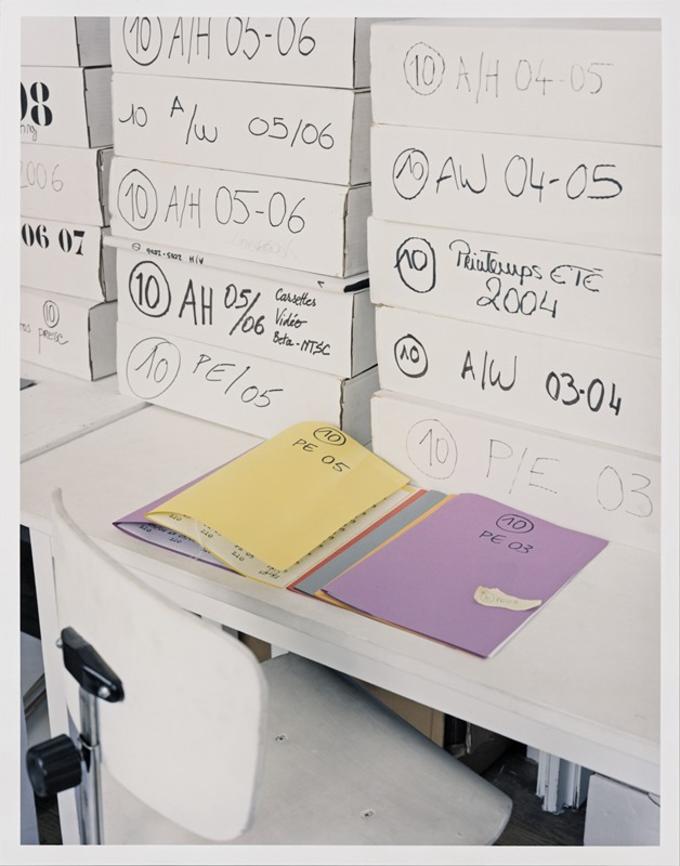 10 A/H 05-06
10 A/W 05/06
10 A/H 05-06
10 AH 05/06
Cassettes
Vidéo
Beta-NTSC
10 PE/05
10 A/H 04-05
10 AW 04-05
10 Printemps ETÉ
2004
10 A/W 03-04
10 P/E 03
2006
06 07
10
10
PE 05
10
PE 03